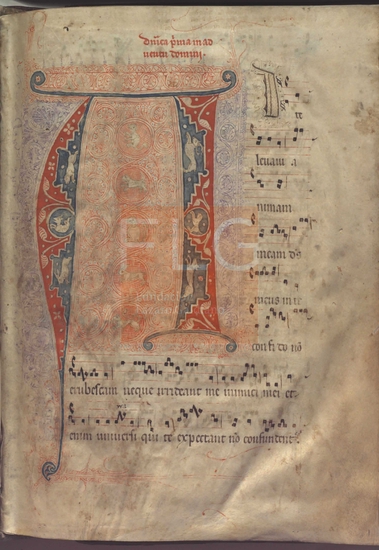 dn̄ica p̄ma in ad
uentu domini.
A
D te
leuaui a
nimam
meam ds̄
meus in te
confido nō
erubescam neque irrideant me inimici mei et
enim uniuersi qui te expectant nō confundent᷑
FLG
Fundación
Lázaro